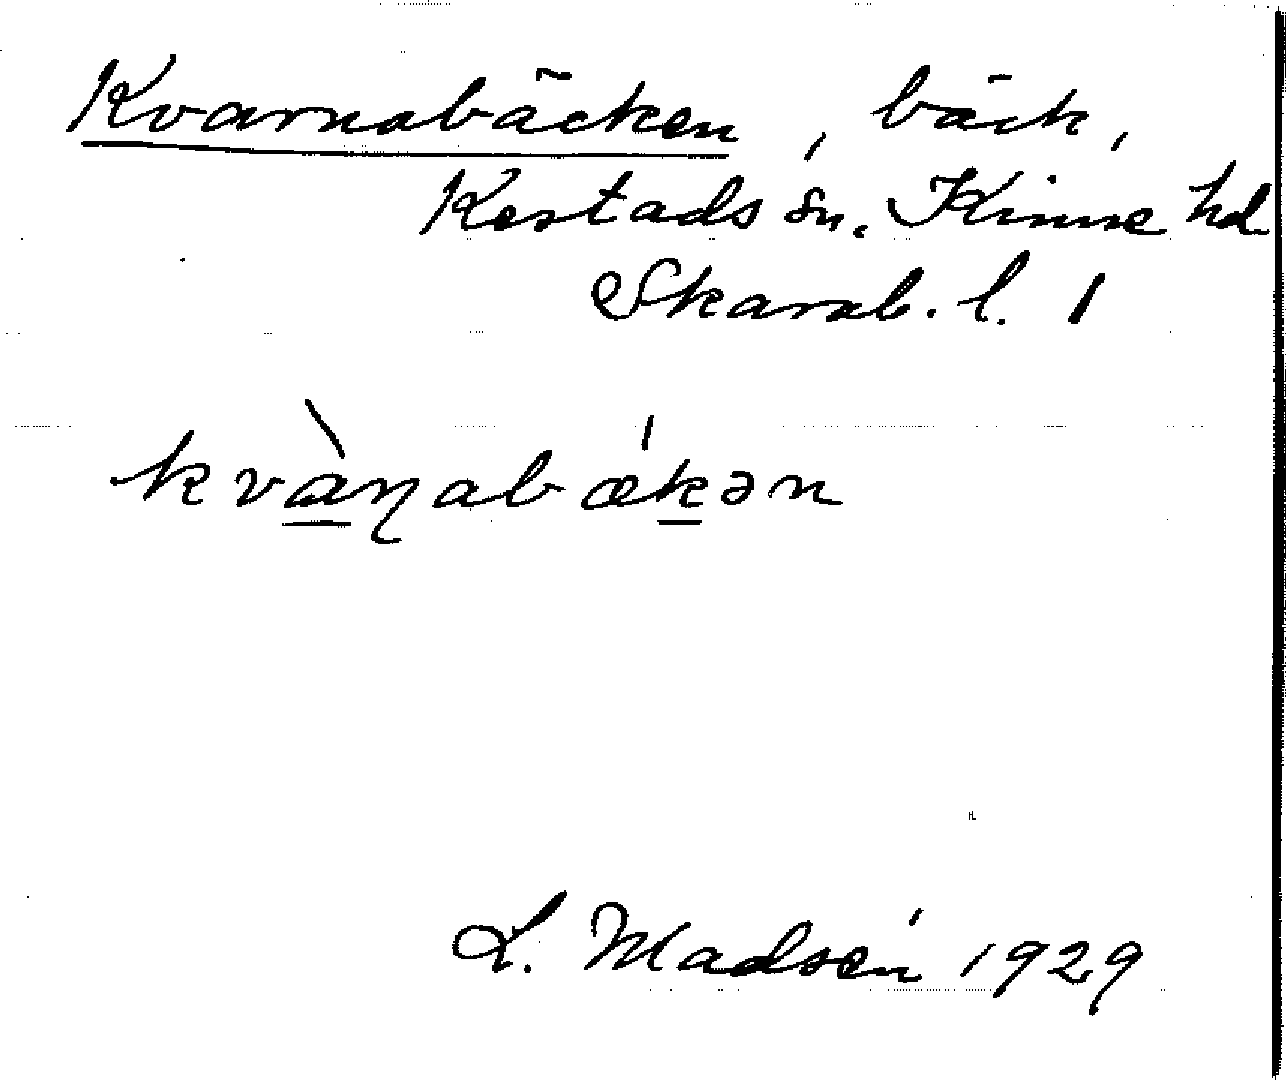 Kvarnabäcken, bäck,
Kestads sn. Kinne hd
Skarab. l. 1
kvàɳabǽkən
L. Madsén 1929